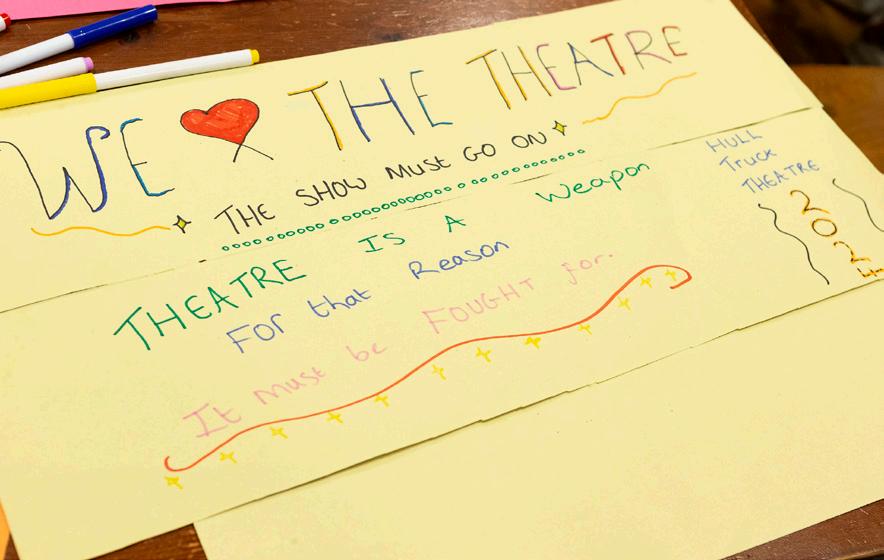 WE ❤ THE THEATRE
THE SHOW MUST GO ON
THEATRE IS A Weapon
For that Reason
It must be FOUGHT for.
HULL
Truck
THEATRE
2024